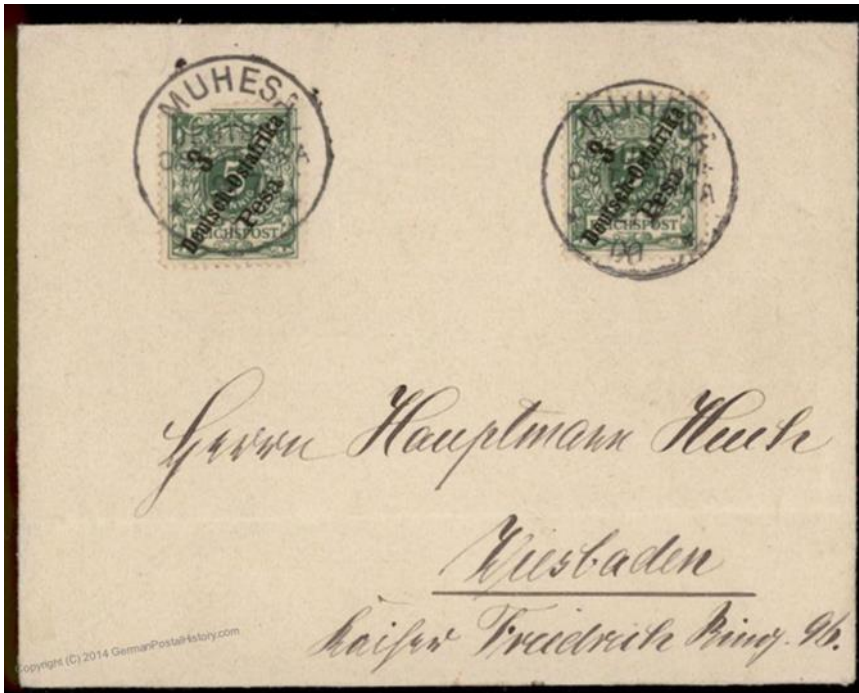 MUHESA
3
5
Deutsch-Ostafrika
Pesa
REICHSPOST
MUHESA
3
Deutsch-Ostafrika
Pesa
REICHSPOST
00
Herrn Hauptmann
Wiesbaden
Kaiser Friedrich Ring. 96.
Copyright (C) 2014 GermanPostalHistory.com